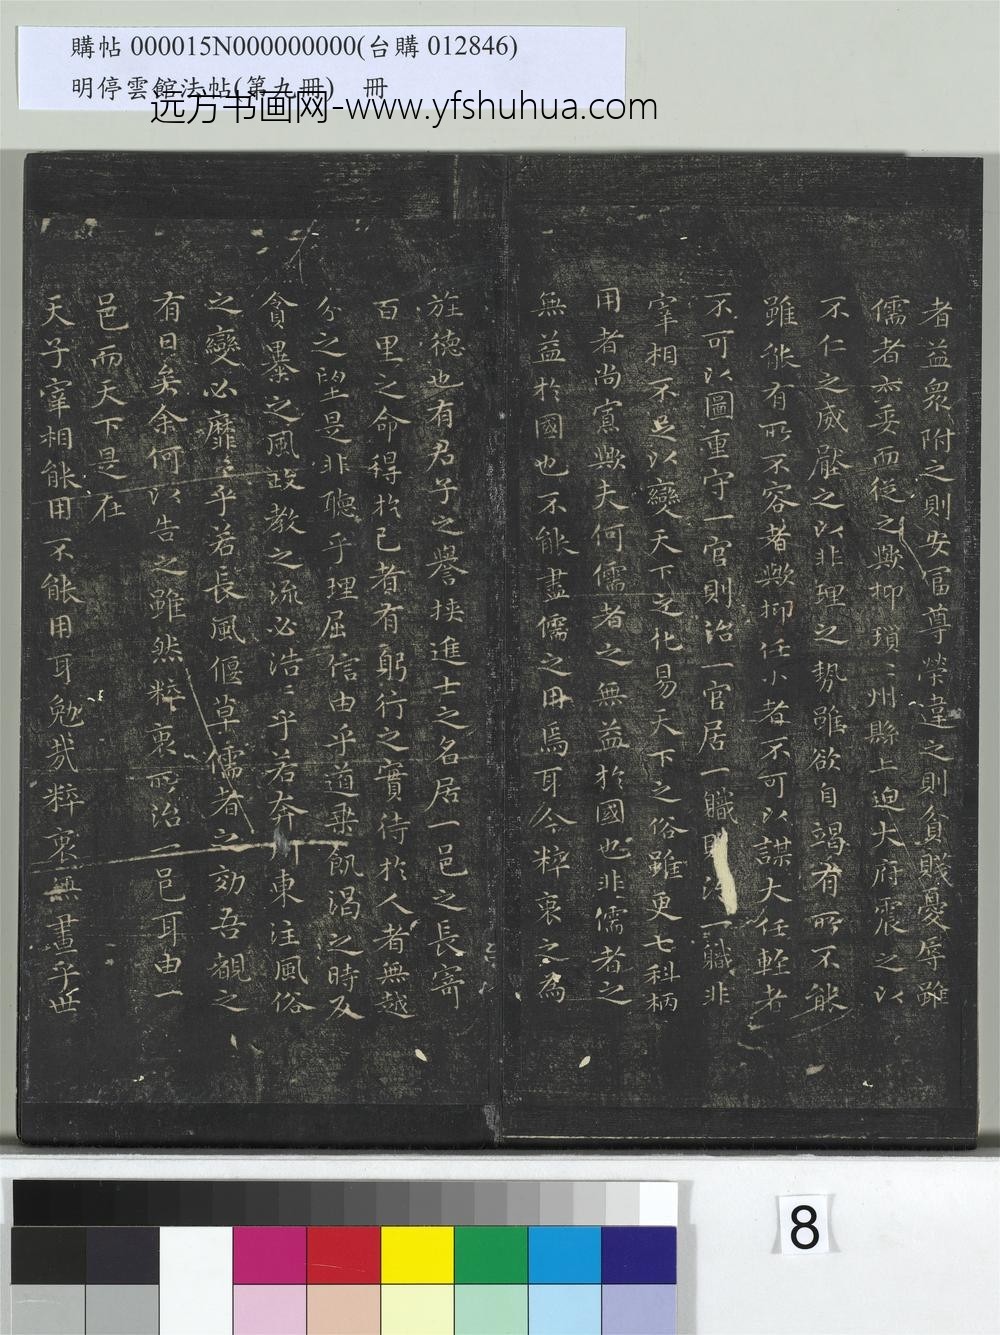 購帖 000015N000000000(台購 012846)
明停雲館法帖(第九冊) 冊
远方书画网-www.yfshuhua.com
者益衆附之則安富尊榮違之則貧賤憂辱雖
儒者亦委而從之歟抑瑣〻州縣上迫大府震之以
不仁之威壓之以非理之勢雖欲自竭有所不能
雖能有所不容者歟抑任小者不可以謀大任輕者
不可以圖重守一官則治一官居一職則治一職非
宰相不足以變天下之化易天下之俗雖更七科柄
用者尚寡歟夫何儒者之無益於國也非儒者之
無益於國也不能盡儒之用焉耳今粹衷之為
旌德也有君子之譽挟進士之名居一邑之長寄
百里之命得於己者有躬行之實待於人者無越
分之望是非聽乎理屈信由乎道乘飢渴之時反
貪暴之風政教之流必浩〻乎若奔川東注風俗
之變必靡〻乎若長風偃草儒者之効吾覩之
有日矣余何以告之雖然粹衷所治一邑耳由一
邑而天下是在
天子宰相能用不能用耳勉哉粹衷無晝乎世
8